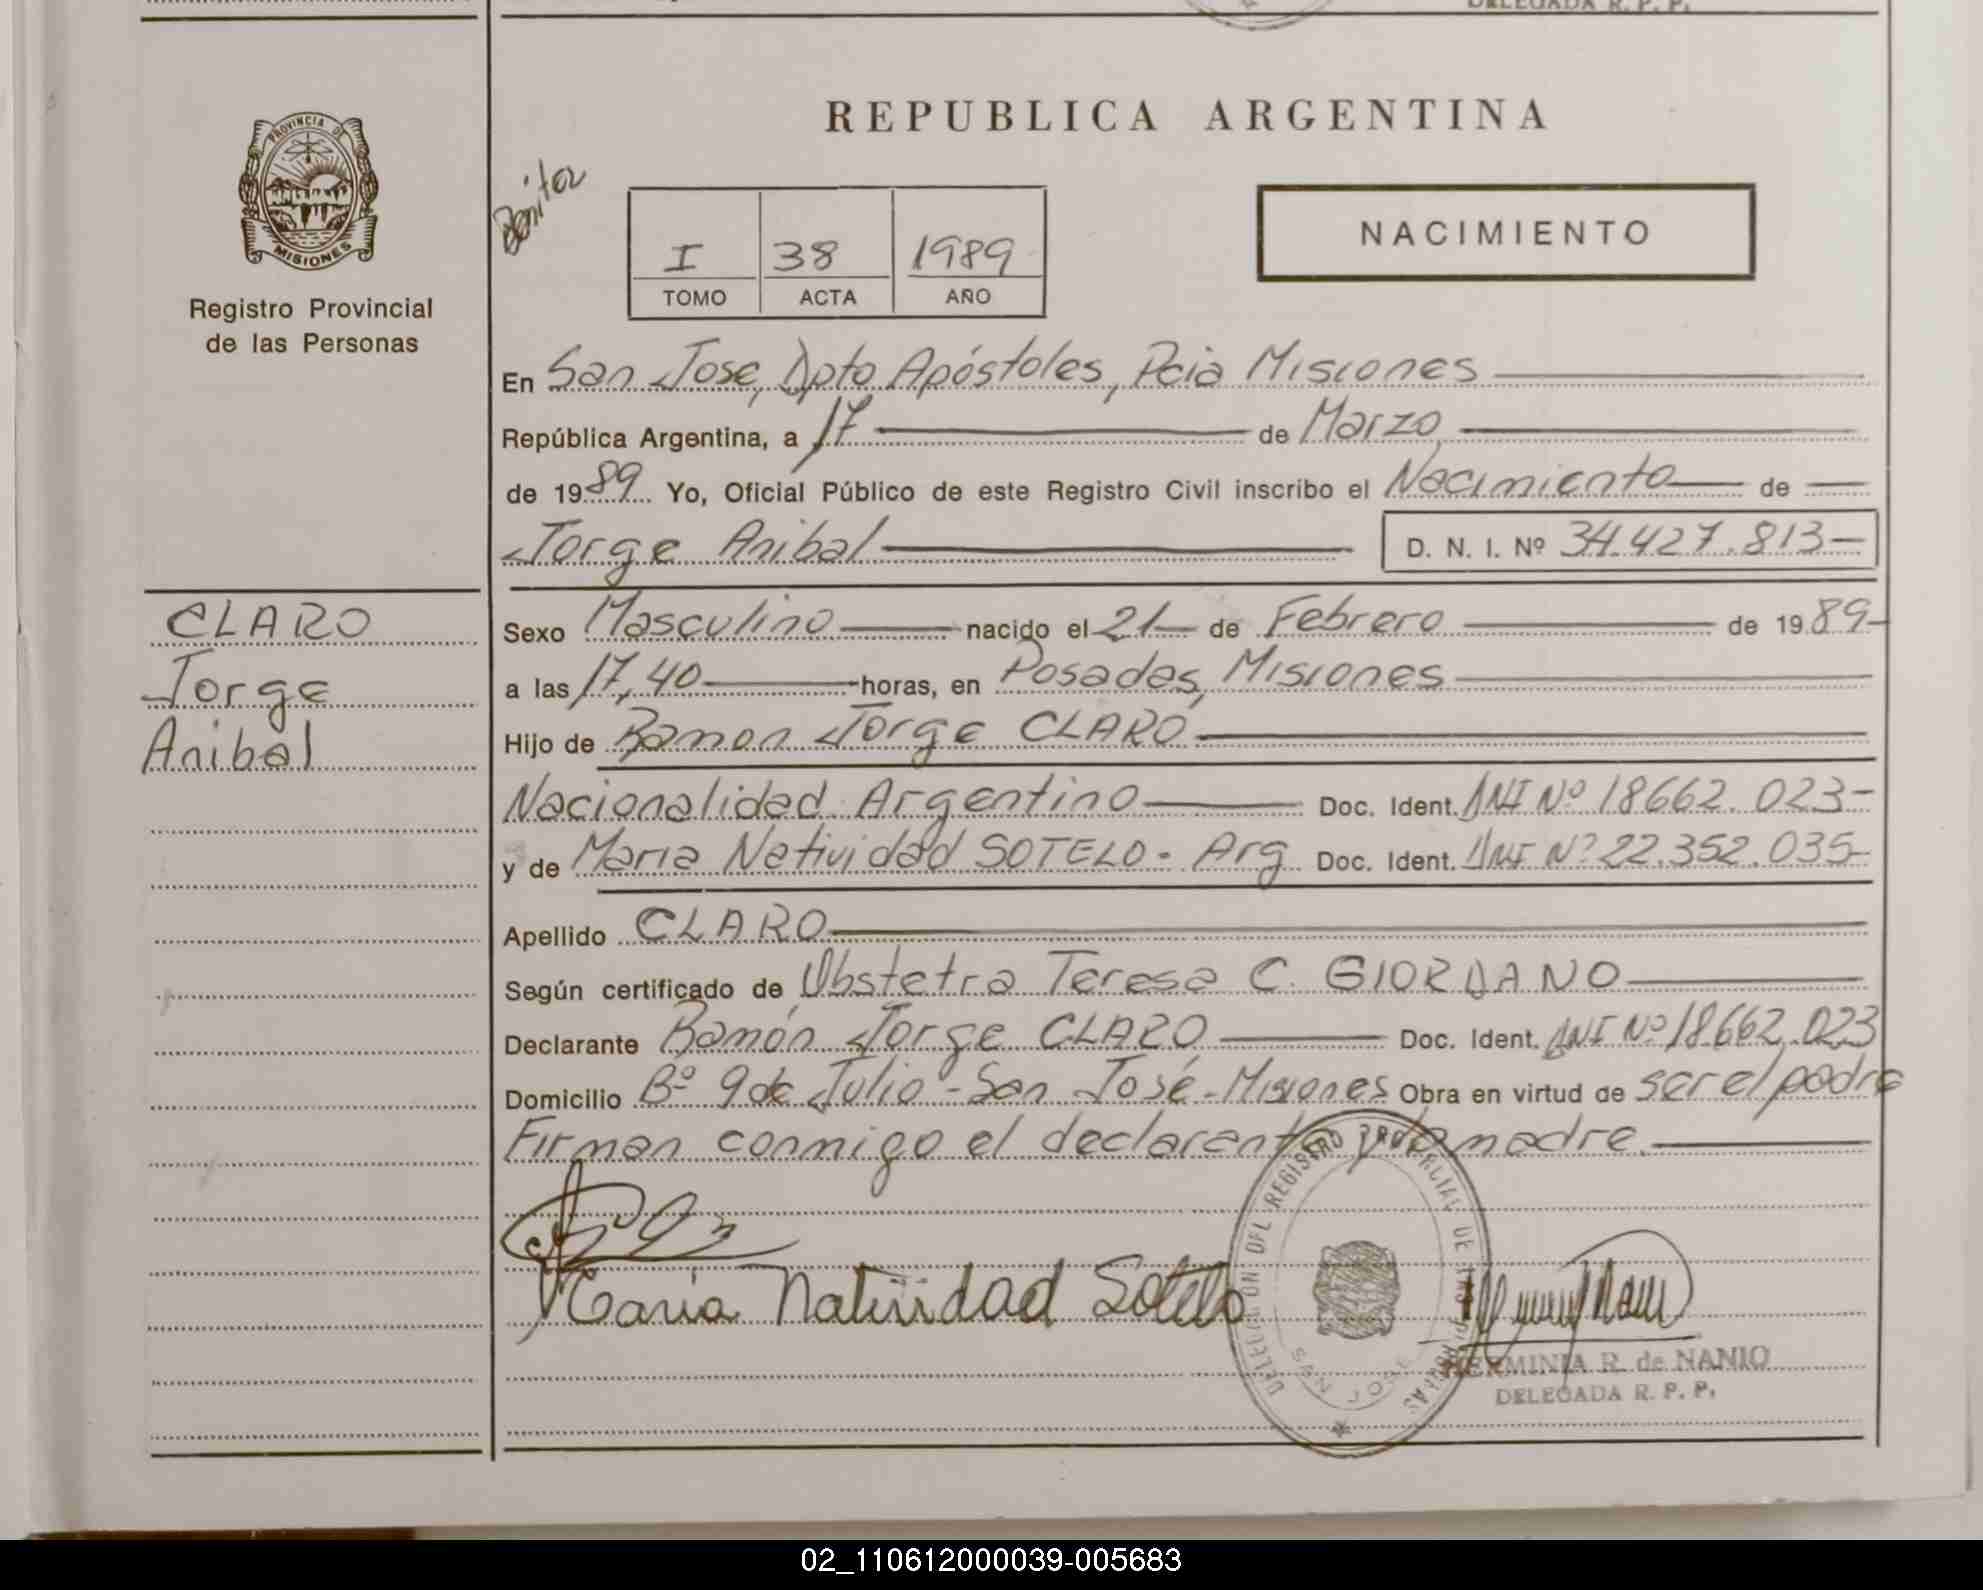 DELEGADA R. P. P.
PROVINCIA DE
MISIONES
Registro Provincial
de las Personas
REPUBLICA ARGENTINA
Benitez
I 38 1989
TOMO ACTA AÑO
NACIMIENTO
En San Jose, Dpto Apóstoles, Pcia Misiones
República Argentina, a 17 de Marzo
de 1989 Yo, Oficial Público de este Registro Civil inscribo el Nacimiento de
Jorge Anibal D. N. I. Nº 34.427.813-
CLARO
Jorge
Anibal
Sexo Masculino nacido el 21 de Febrero de 1989
a las 17,40 horas, en Posadas, Misiones
Hijo de Ramon Jorge CLARO
Nacionalidad Argentino Doc. Ident. DNI Nº 18662.023-
y de Maria Natividad SOTELO - Arg Doc. Ident. DNI Nº 22.352.035-
Apellido CLARO
Según certificado de Obstetra Teresa C. GIORDANO
Declarante Ramón Jorge CLARO Doc. Ident. DNI Nº 18662.023
Domicilio Bº 9 de Julio - San José - Misiones Obra en virtud de ser el padre
Firman conmigo el declarante y la madre.
Maria Natividad Sotelo
DELEGACION DEL REGISTRO PROVINCIAL DE LAS PERSONAS
SAN JOSE
HERMINIA R. de NANIO
DELEGADA R. P. P.
02_110612000039-005683